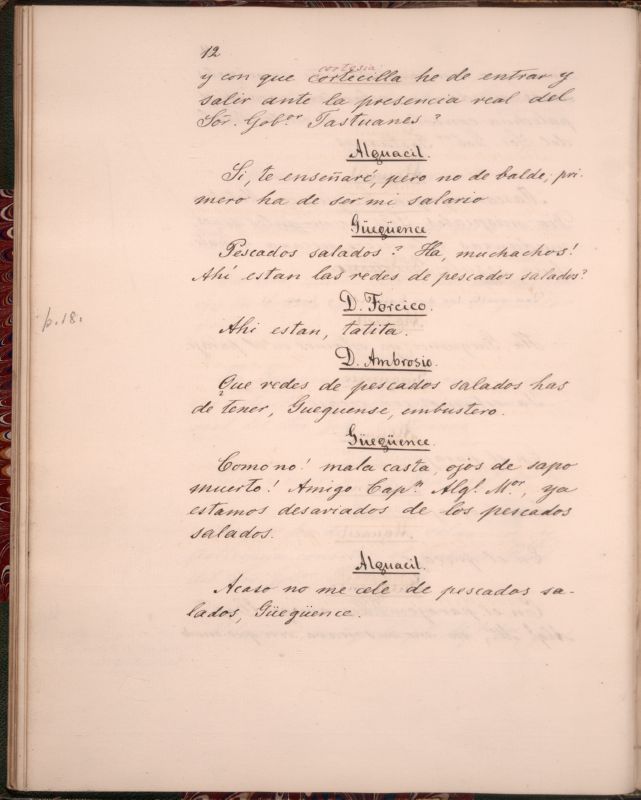 12
cortesia
y con que cortecilla he de entrar y
salir ante la presencia real del
Sōr. Gobor Tastuanes?
Alguacil.
Si, te enseñaré, pero no de balde; pri-
mero ha de ser mi salario
Güegüence
Pescados salados? Ha, muchachos!
Ahí estan las redes de pescados salados?
D. Forcico.
Ahi estan, tatita.
D. Ambrosio.
¿Que redes de pescados salados has
de tener, Gueguense, embustero.
Güegüence.
Como no! mala casta, ojos de sapo
muerto! Amigo Capn Algl. Mor, ya
estamos desariados de los pescados
salados.
Alguacil.
Acaso no me cele de pescados sa-
lados, Güegüence.
p. 18.